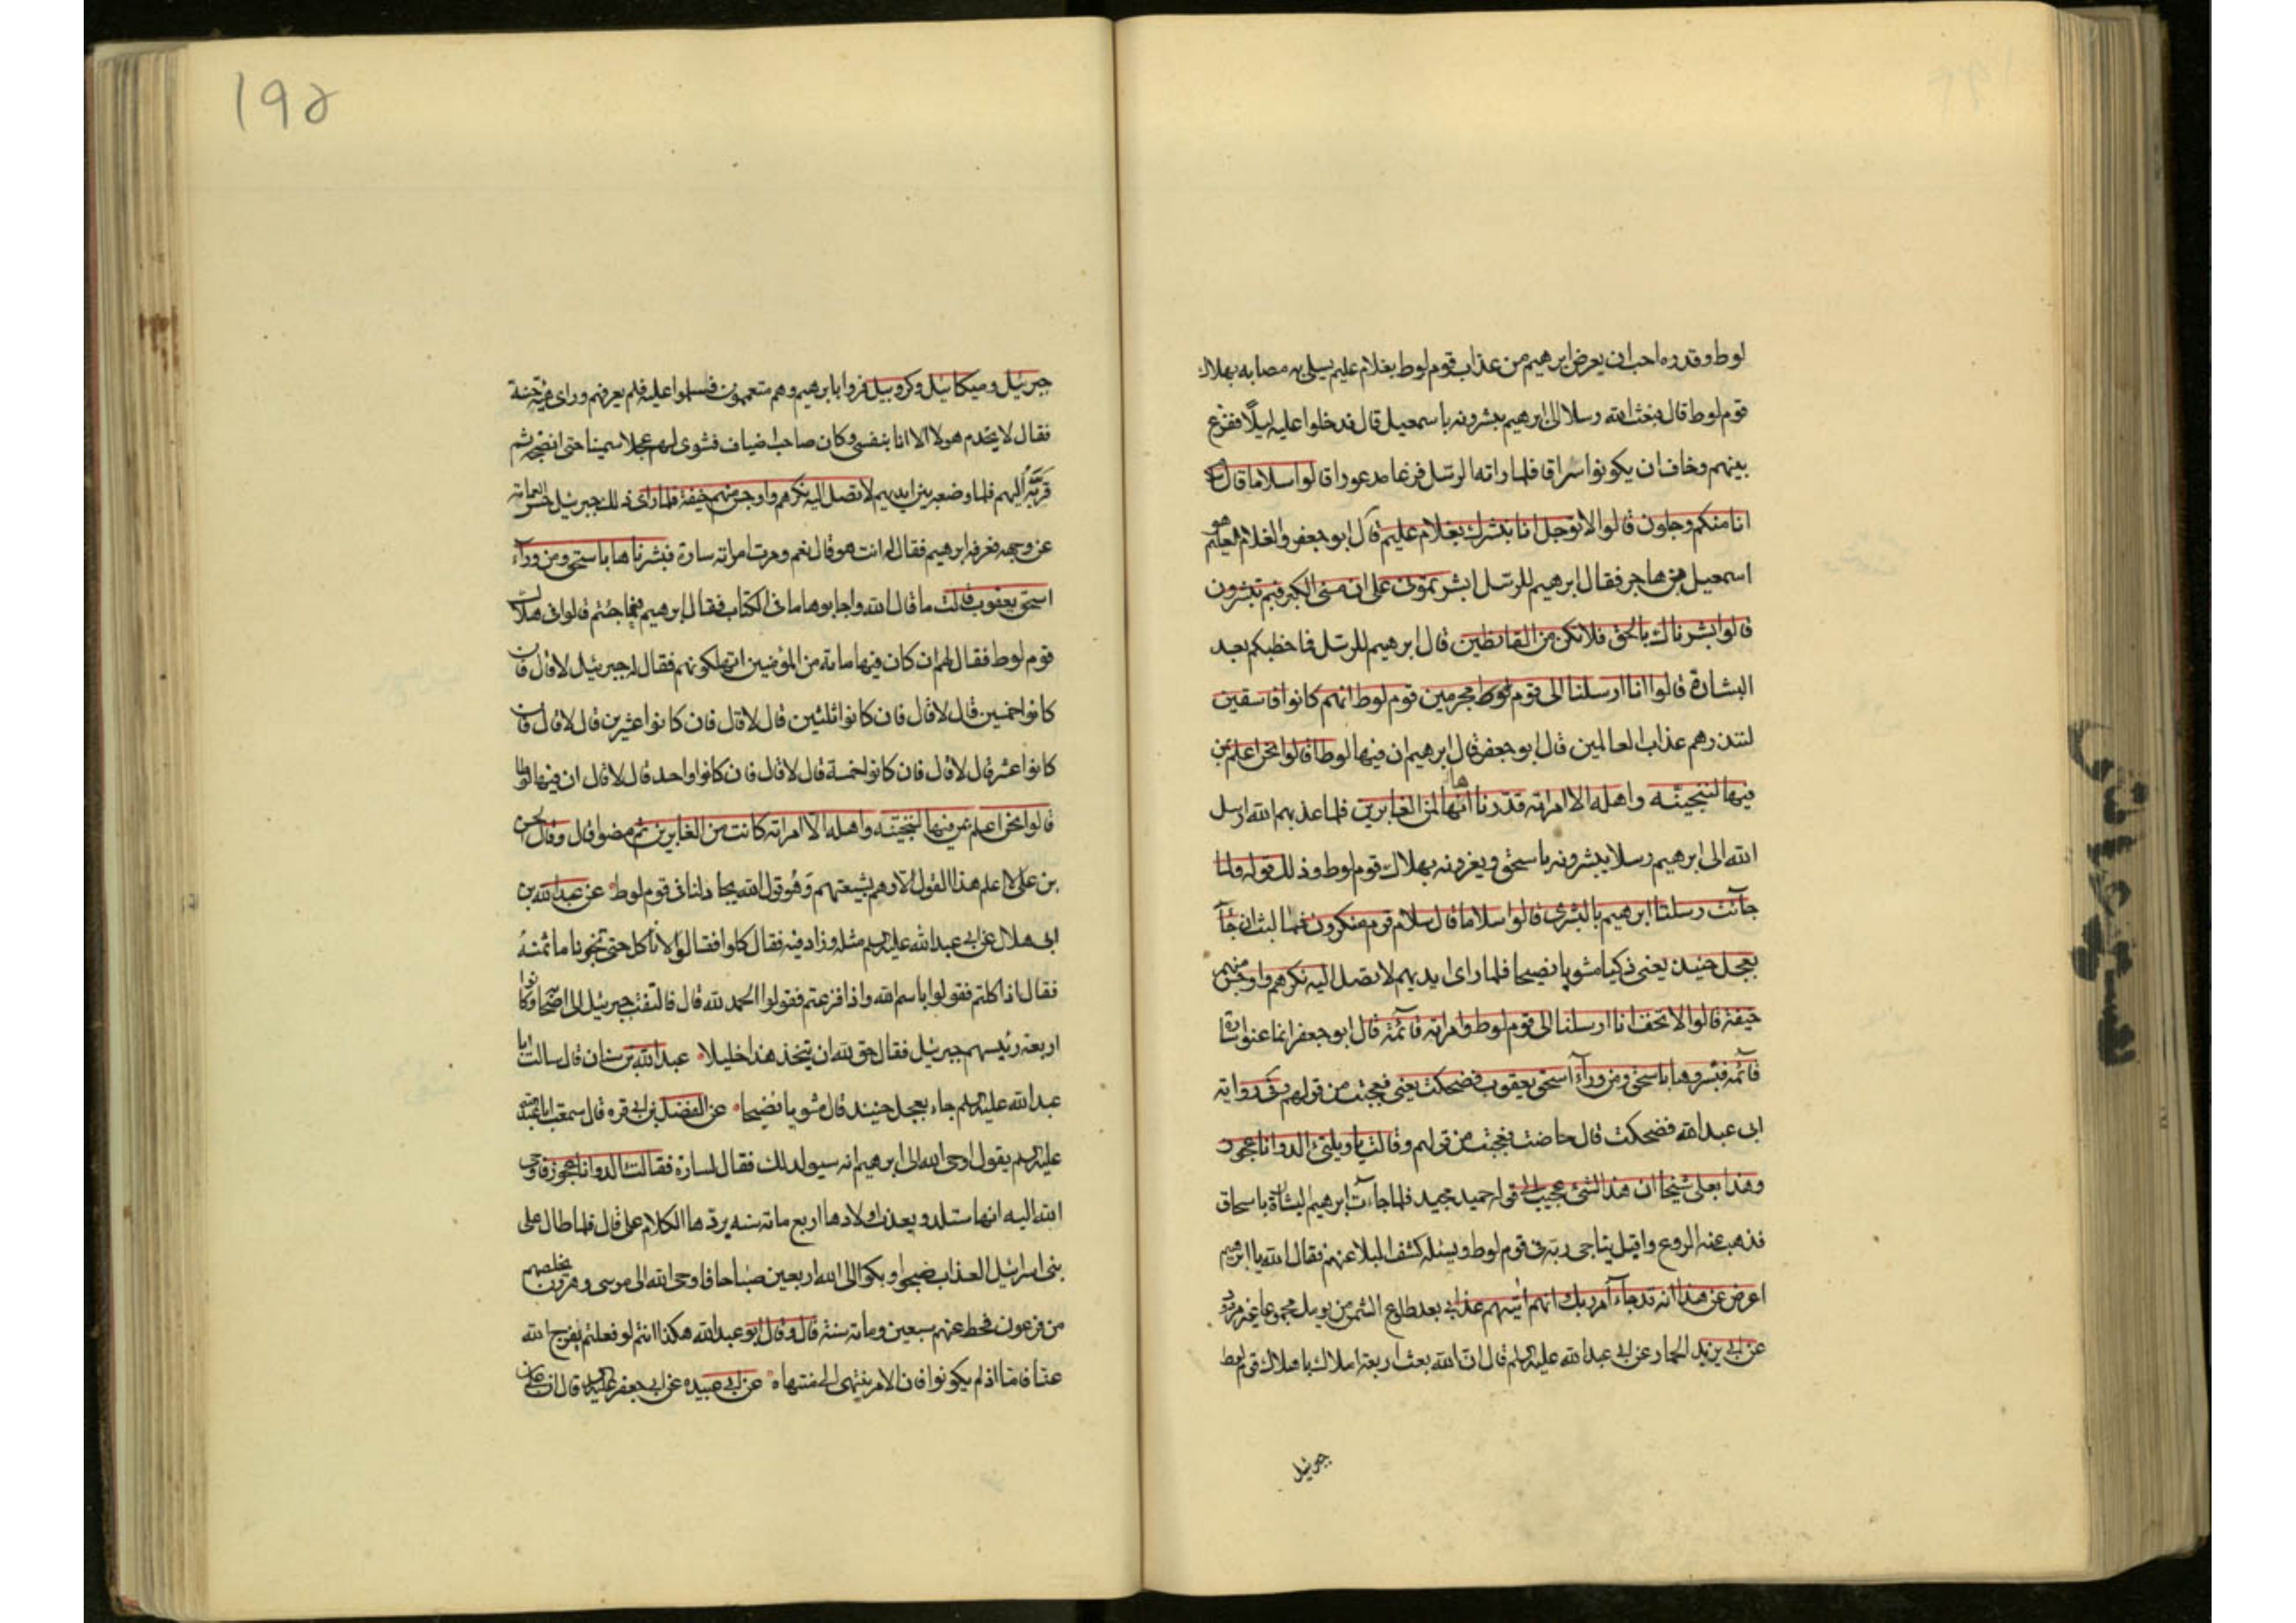 لوط وقدره احب ان يعرض ابرهيم من عذاب قوم لوط بغلام عليم يسلى به مصابه بهلاك
قوم لوط قال فبعث الله رسلا الى ابرهيم يبشرونه باسمعيل قال فدخلوا عليه ليلا ففزع
بينهم وخاف ان يكونوا سراقا فلما راته الرسل فزعا مدعورا قالوا سلاما قال
انا منكم وجلون قالوا لا توجل انا نبشرك بغلام عليم قال ابو جعفر والغلام العليم هو
اسمعيل من هاجر فقال ابرهيم للرسل ابشرتمونى على ان مسنى الكبر فبم تبشرون
قالوا بشرناك بالحق فلا تكن من القانطين قال ابرهيم للرسل فما خطبكم بعد
البشارة قالوا انا ارسلنا الى قوم لوط مجرمين قوم لوط انهم كانوا فاسقين
لننذرهم عذاب العالمين قال ابو جعفر قال ابرهيم ان فيها لوطا قالوا نحن اعلم بمن
فيها لننجينه واهله الا امراته قدرنا انها لمن الغابرين فلما عذبهم الله ارسل
الله الى ابرهيم رسلا يبشرونه باسحق ويعزونه بهلاك قوم لوط وذلك قوله ولما
جآئت رسلنا ابرهيم بالبشرى قالوا سلاما قال سلام قوم منكرون فما لبث ان جآء
بعجل حنيذ يعنى ذكيا مشويا نضيجا فلما راى ايديهم لا تصل اليه نكرهم واوجس منهم
خيفة قالوا لا تخف انا ارسلنا الى قوم لوط وامراته قآئمة قال ابو جعفر انما عنوا سارة
قآئمة فبشروها باسحق ومن ورآء اسحق يعقوب فضحكت يعنى فعجبت من قولهم وفى رواية
ابى عبد الله فضحكت قال حاضت فعجبت من قولهم وقالت يا ويلتى االد وانا عجوز
وهذا بعلى شيخا ان هذا لشئ عجيب الى قوله حميد مجيد فلما جاءت ابرهيم البشارة باسحاق
فذهب عنه الروع واقبل يناجى ربه فى قوم لوط ويسئله كشف البلاء عنهم فقال الله يا ابرهيم
اعرض عن هذا انه قد جآء امر ربك انهم اتيهم عذابى بعد طلوع الشمس من يومك محتوما غير مردود
عن ابى يزيد الحمار عن ابى عبد الله عليه السلم قال ان الله بعث اربعة املاك باهلاك قوم لوط
جبرئيل
١٩٥
جبرئيل وميكائيل وكروبيل فمروا بابرهيم وهم متعممون فسلموا عليه فلم يعرفهم وراى هيئة حسنة
فقال لا يخدم هولاء الا انا بنفسى وكان صاحب اضياف فشوى لهم عجلا سمينا حتى انضجه ثم
قربه اليهم فلما وضعه بين ايديهم لا تصل اليه نكرهم واوجس منهم خيفة فلما راى ذلك جبرئيل حسر العمامة
عن وجهه فعرفه ابرهيم فقال له انت هو قال نعم ومرت امراته سارة فبشرناها باسحق ومن ورآء
اسحق يعقوب قالت ما قال الله واجابوها ما فى الكتاب فقال ابرهيم فيما جئتم قالوا فى هلاك
قوم لوط فقال لهم ان كان فيها مائة من المؤمنين اتهلكونهم فقال له جبرئيل لا قال فان
كانوا خمسين قال لا قال فان كانوا ثلثين قال لا قال فان كانوا عشرين قال لا قال فان
كانوا عشر قال لا قال فان كانوا خمسة قال لا قال فان كانوا واحد قال لا قال ان فيها لوطا
قالوا نحن اعلم بمن فيها لننجينه واهله الا امراته كانت من الغابرين ثم مضوا قال وقال الحسن
بن على لا اعلم هذا القول الا وهم بشيعتهم وهو قول الله يجادلنا فى قوم لوط عن عبد الله بن
ابى هلال عن ابى عبد الله عليه السلم مثله وزاد فيه فقال كلوا فقالوا لا ناكل حتى تخبرنا ما ثمنه
فقال اذا اكلتم فقولوا باسم الله واذا فرغتم فقولوا الحمد لله قال فالتفت جبرئيل الى اصحابه وكانوا
اربعة رئيسهم جبرئيل فقال حق لله ان يتخذ هذا خليلا عبد الله بن سنان قال سالت ابا
عبد الله عليه السلم جاء بعجل حنيذ قال مشويا نضيجا عن الفضل بن ابى قره قال سمعت ابا عبد الله
عليه السلم يقول اوحى الله الى ابرهيم انه سيولد لك فقال لسارة فقالت االد وانا عجوز فاوحى
الله اليه انها ستلد ويعذب اولادها اربع مائة سنه بردها الكلام على قال فلما طال على
بنى اسرائيل العذاب ضجوا وبكوا الى الله اربعين صباحا فاوحى الله الى موسى وهرون يخلصهم
من فرعون فحط عنهم سبعين ومائة سنة قال وقال ابو عبد الله هكذا انتم لو فعلتم لفرج الله
عنا فاما اذ لم يكونوا فان الامر ينتهى الى منتهاه عن ابى عبيده عن ابى جعفر عليه السلم قال ان